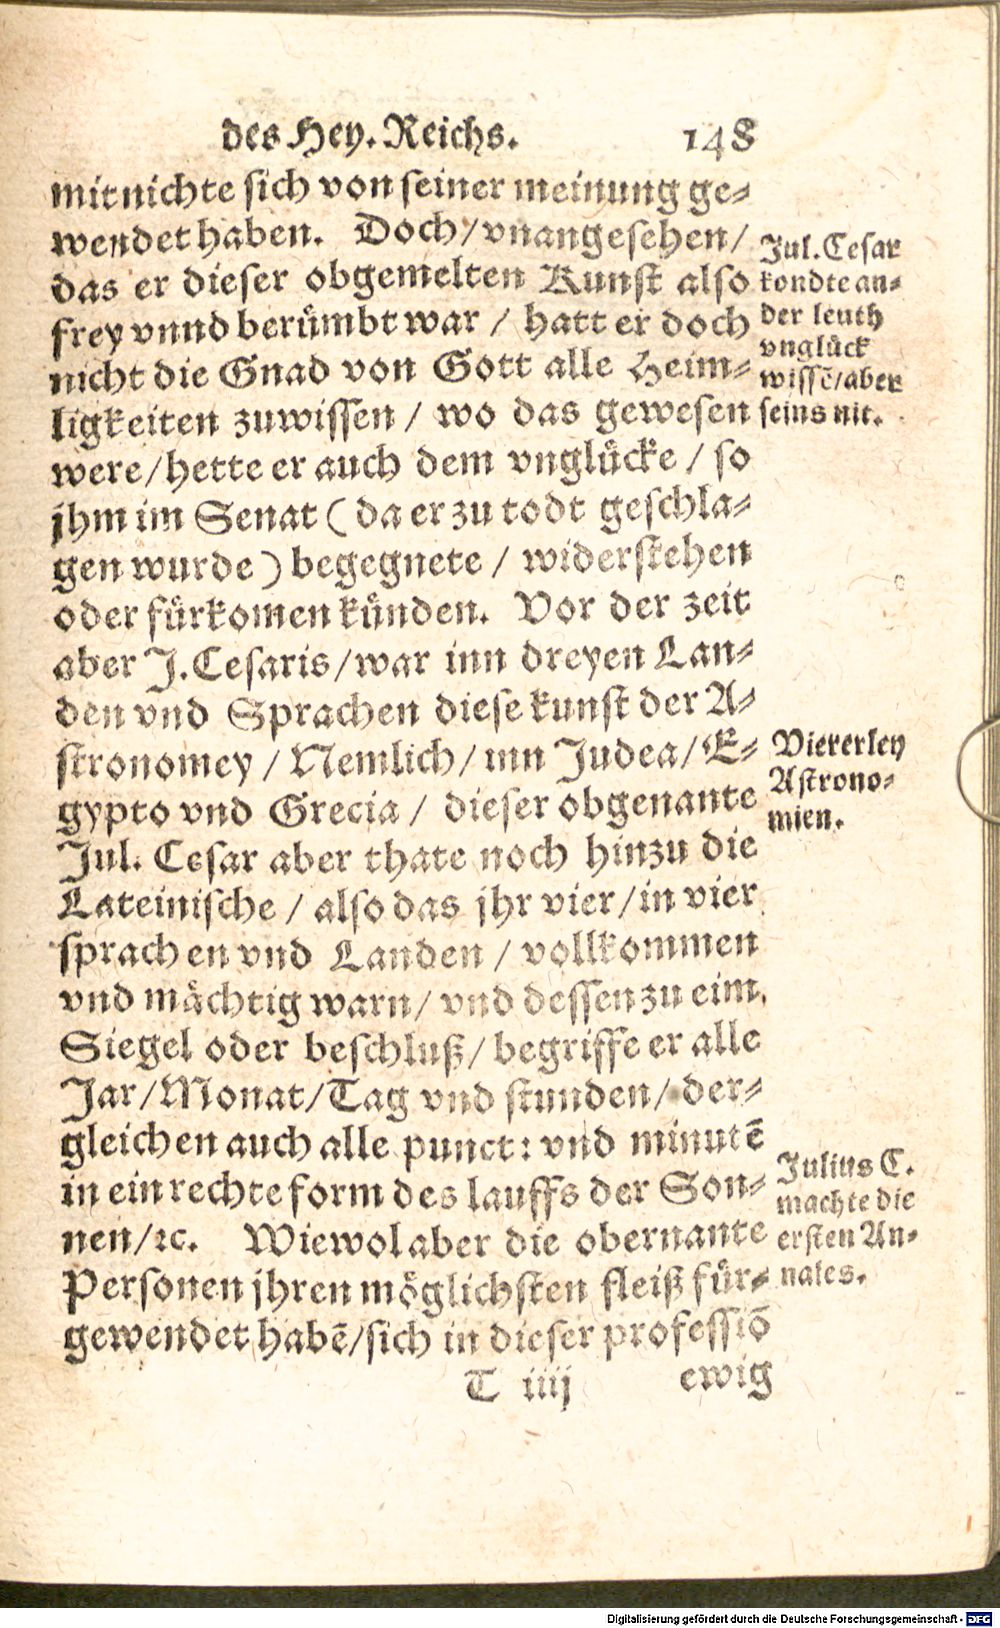 des Hey. Reichs. 148
mit nichte sich von seiner meinung ge-
wendet haben. Doch/ vnangesehen/
das er dieser obgemelten Kunst also
frey vnnd berümbt war / hatt er doch
nicht die Gnad von Gott alle Heim-
ligkeiten zuwissen / wo das gewesen
were/ hette er auch dem vnglücke / so
jhm im Senat ( da er zu todt geschla-
gen wurde ) begegnete / widerstehen
oder fürkomen künden. Vor der zeit
aber J. Cesaris/ war inn dreyen Lan-
den vnd Sprachen diese kunst der A-
stronomey / Nemlich/ inn Judea/ E-
gypto vnd Grecia / dieser obgenante
Jul. Cesar aber thate noch hinzu die
Lateinische / also das jhr vier/ in vier
sprachen vnd Landen / vollkommen
vnd mächtig warn/ vnd dessen zu eim
Siegel oder beschluß/ begriffe er alle
Jar/ Monat/ Tag vnd stunden/ der-
gleichen auch alle punct: vnd minutē
in ein rechte form des lauffs der Son-
nen/ ꝛc. Wiewol aber die obernante
Personen jhren möglichsten fleiß für-
gewendet habē/ sich in dieser professiō
T iiij ewig
Jul. Cesar
kondte an-
der leuth
vnglück
wissē/ aber
seins nit.
Viererley
Astrono-
mien.
Julius C.
machte die
ersten An-
nales.
Digitalisierung gefördert durch die Deutsche Forschungsgemeinschaft - DFG